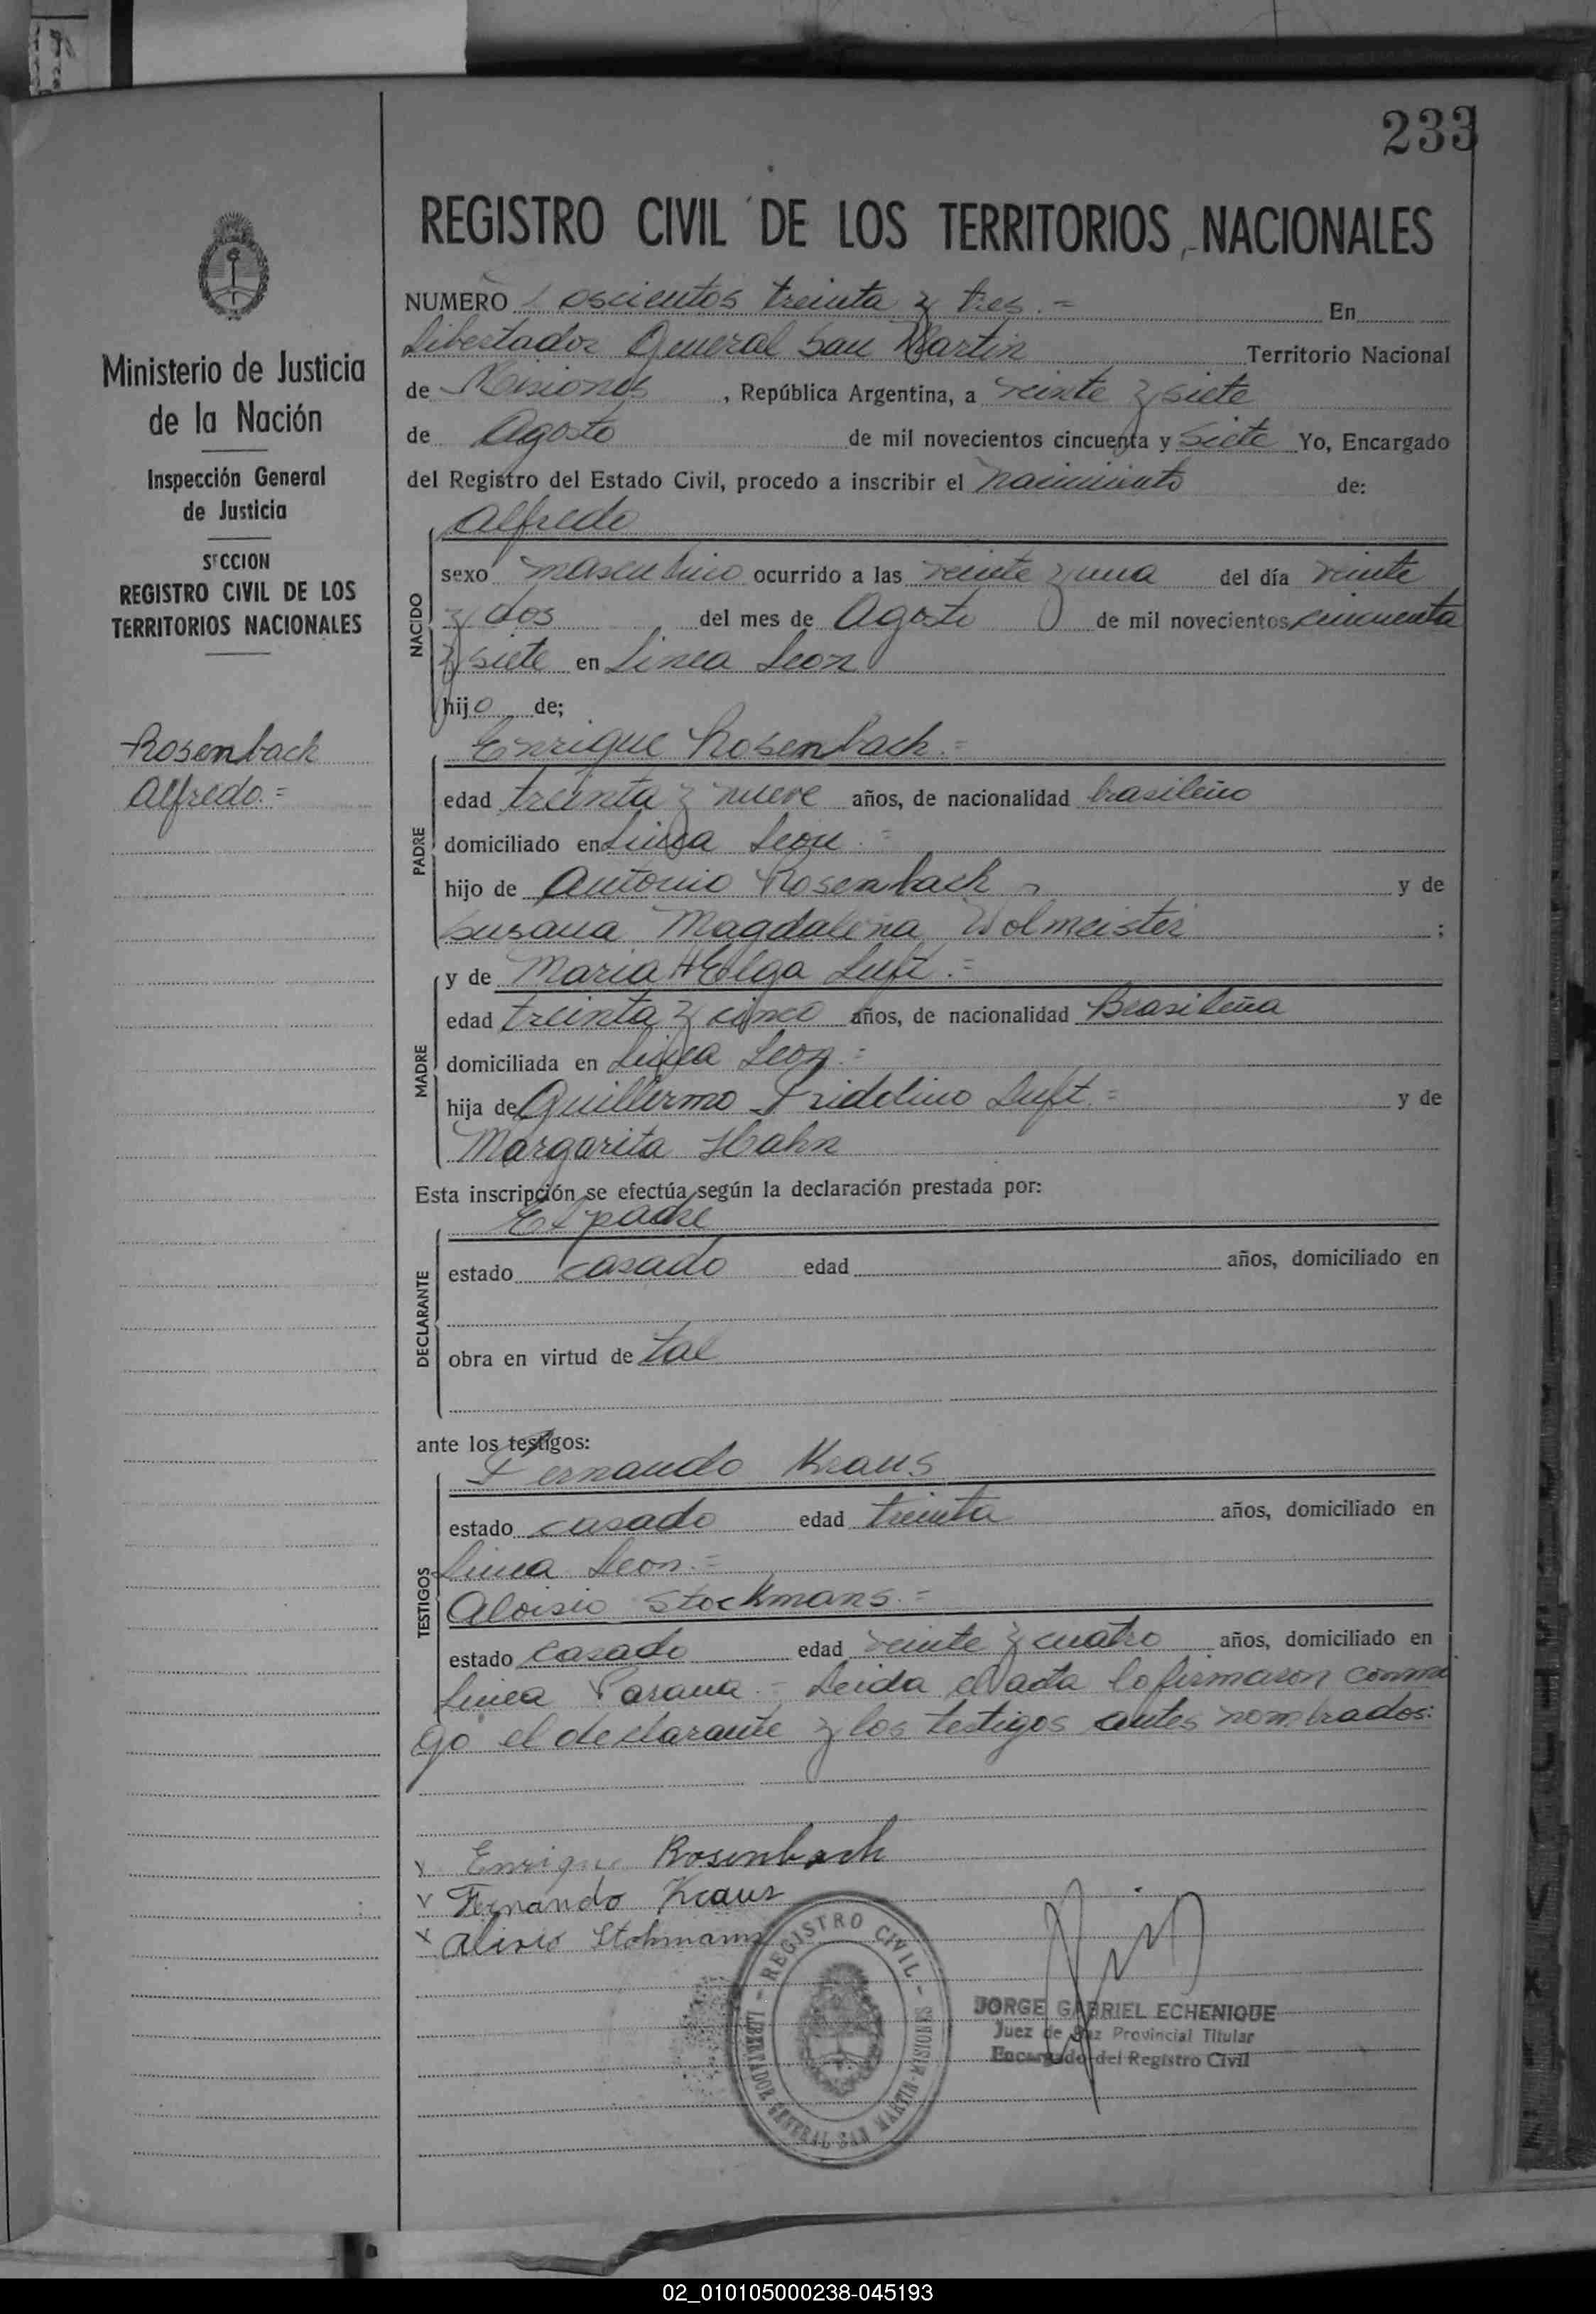 233
REGISTRO CIVIL DE LOS TERRITORIOS NACIONALES
NUMERO Doscientos treinta y tres.= En
Libertador General San Martin Territorio Nacional
de Misiones, República Argentina, a veinte y siete
de Agosto de mil novecientos cincuenta y Siete Yo, Encargado
del Registro del Estado Civil, procedo a inscribir el nacimiento de:
Alfredo
NACIDO
sexo masculino ocurrido a las veinte y una del día veinte
y dos del mes de Agosto de mil novecientos cincuenta
y siete en Linea Leon
hijo de;
Enrique Rosenbach.=
PADRE
edad treinta y nueve años, de nacionalidad brasileño
domiciliado en Linea Leon.=
hijo de Antonio Rosenbach y de
Susana Magdalena Wolmeister ;
MADRE
y de Maria Helga Luft.=
edad treinta y cinco años, de nacionalidad Brasileña
domiciliada en Linea Leon.=
hija de Guillermo Fridolino Luft.= y de
Margarita Hahn
Esta inscripción se efectúa según la declaración prestada por:
El padre
DECLARANTE
estado casado edad años, domiciliado en
obra en virtud de tal
ante los testigos:
Fernando Kraus
TESTIGOS
estado casado edad treinta años, domiciliado en
Linea Leon.=
Aloisio Stockmans.=
estado casado edad veinte y cuatro años, domiciliado en
Linea Parana.- Leida el acta lo firmaron conmi
go el declarante y los testigos antes nombrados:
x Enrique Rosenbach
x Fernando Kraus
x Alisio Stohmanns
REGISTRO CIVIL
LIBERTADOR GENERAL SAN MARTIN - MISIONES
JORGE GABRIEL ECHENIQUE
Juez de Paz Provincial Titular
Encargado del Registro Civil
Ministerio de Justicia
de la Nación
Inspección General
de Justicia
SECCION
REGISTRO CIVIL DE LOS
TERRITORIOS NACIONALES
Rosenbach
Alfredo.=
02_010105000238-045193